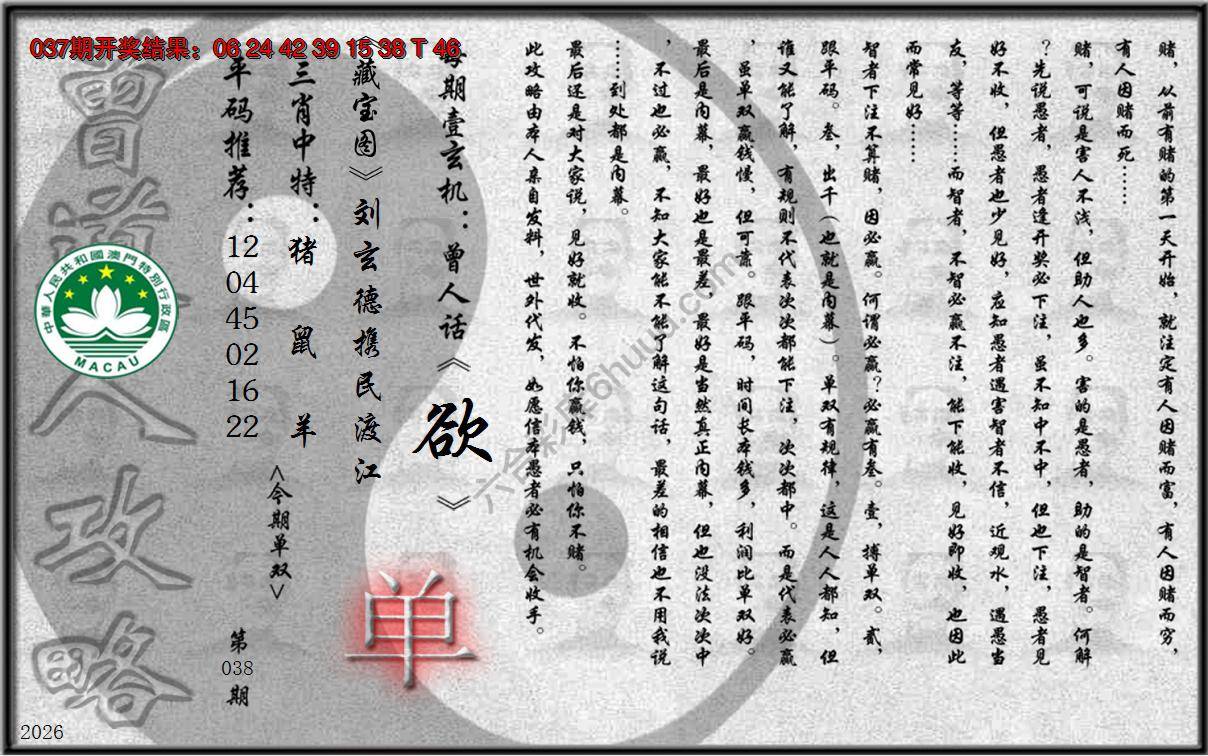 037期开奖结果：06 24 42 39 15 38 T 46
赌，从前有赌的第一天开始，就注定有人因赌而富，有人因赌而穷，
有人因赌而死……
赌，可说是害人不浅，但助人也多。害的是愚者，助的是智者。何解
？先说愚者，愚者逢开奖必下注，虽不知中不中，但也下注，愚者见
好不收，但愚者也少见好，应知愚者遇害智者不信，近观水，遇愚当
友，等等……而智者，不智必赢不注，能下能收，见好即收，也因此
而常见好……
智者下注不算赌，因必赢。何谓必赢？必赢有叁。壹，搏单双。贰，
跟平码。叁，出千（也就是内幕）。单双有规律，这是人人都知，但
谁又能了解，有规则不代表次次都能下注，次次都中。而是代表必赢
，虽单双赢钱慢，但可靠。跟平码，时间长本钱多，利润比单双好。
最后是内幕，最好也是最差，最好是当然真正内幕，但也没法次次中
，不过也必赢，不知大家能不能了解这句话，最差的相信也不用我说
……到处都是内幕。
最后还是对大家说，见好就收。不怕你赢钱，只怕你不赌。
此攻略由本人亲自发料，世外代发，如愿信本愚者必有机会收手。
每期壹玄机：曾人话《欲》
《藏宝图》刘玄德携民渡江
三肖中特：猪 鼠 羊
<今期单双>
单
平码推荐：12 04 45 02 16 22
第038期
曾道人攻略
中華人民共和國澳門特別行政區
MACAU
2026
六合彩库6huuu.com